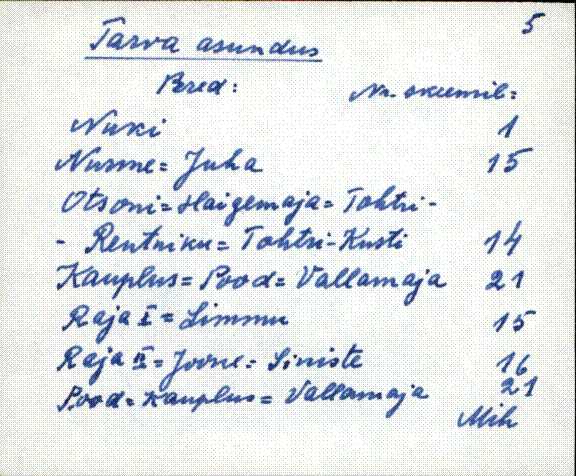 5
Tarva asundus
Pered: Nr. skeemil:
Nuki 1
Nurme = Juha 15
Otsoni = Haigemaja = Tohtri-
- Rentniku = Tohtri-Kusti 14
Kauplus = Pood = Vallamaja 21
Raja I = Limmu 15
Raja II = Joone = Siniste 16
Pood = Kauplus = Vallamaja 21
Mih